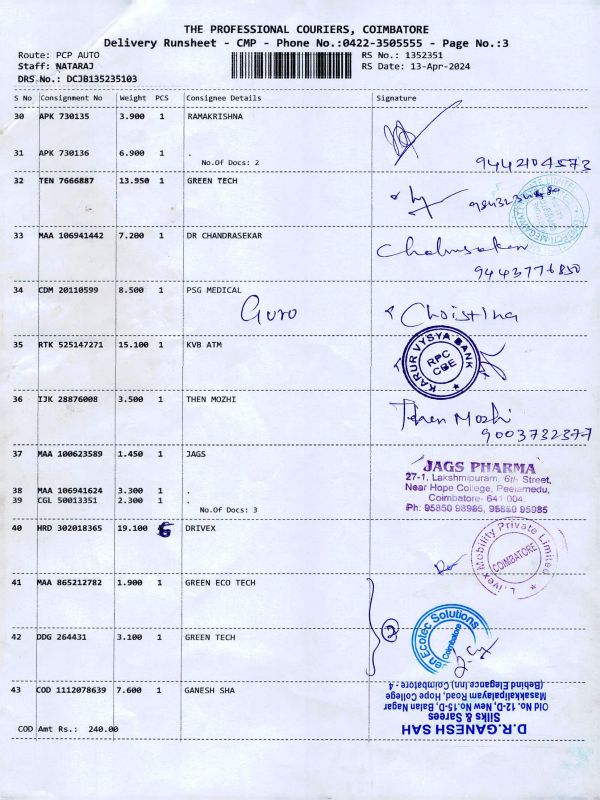 THE PROFESSIONAL COURIERS, COIMBATORE
Delivery Runsheet - CMP - Phone No.:0422-3505555 - Page No.:3
Route: PCP AUTO
Staff: NATARAJ
DRS No.: DCJB135235103
RS No.: 1352351
RS Date: 13-Apr-2024
S No Consignment No Weight PCS Consignee Details Signature
30 APK 730135 3.900 1 RAMAKRISHNA
31 APK 730136 6.900 1 .
No.Of Docs: 2
9442104573
32 TEN 7666887 13.950 1 GREEN TECH
33 MAA 106941442 7.200 1 DR CHANDRASEKAR
9443776850
34 CDM 20110599 8.500 1 PSG MEDICAL
Guro
Christina
35 RTK 525147271 15.100 1 KVB ATM
KARUR VYSYA BANK
RPC
CBE
36 IJK 28876008 3.500 1 THEN MOZHI
Then Mozhi
9003732377
37 MAA 100623589 1.450 1 JAGS
38 MAA 106941624 3.300 1 .
39 CGL 50013351 2.300 1 .
No.Of Docs: 3
JAGS PHARMA
27-1, Lakshmipuram, 6th Street,
Near Hope College, Peelamedu,
Coimbatore- 641 004.
Ph: 95850 98985, 95850 95985
40 HRD 302018365 19.100 6 DRIVEX
Livex Mobility Private Limited
COIMBATORE
41 MAA 865212782 1.900 1 GREEN ECO TECH
42 DDG 264431 3.100 1 GREEN TECH
2
en Ecotec Solutions
Coimbatore
43 COD 1112078639 7.600 1 GANESH SHA
COD Amt Rs.: 240.00
D.R.GANESH SAH
Silks & Sarees
Old No. 12-D, New No.15-D, Balan Nagar
Masakkalipalayam Road, Hope College
(Behind Elegance Inn) Coimbatore - 4